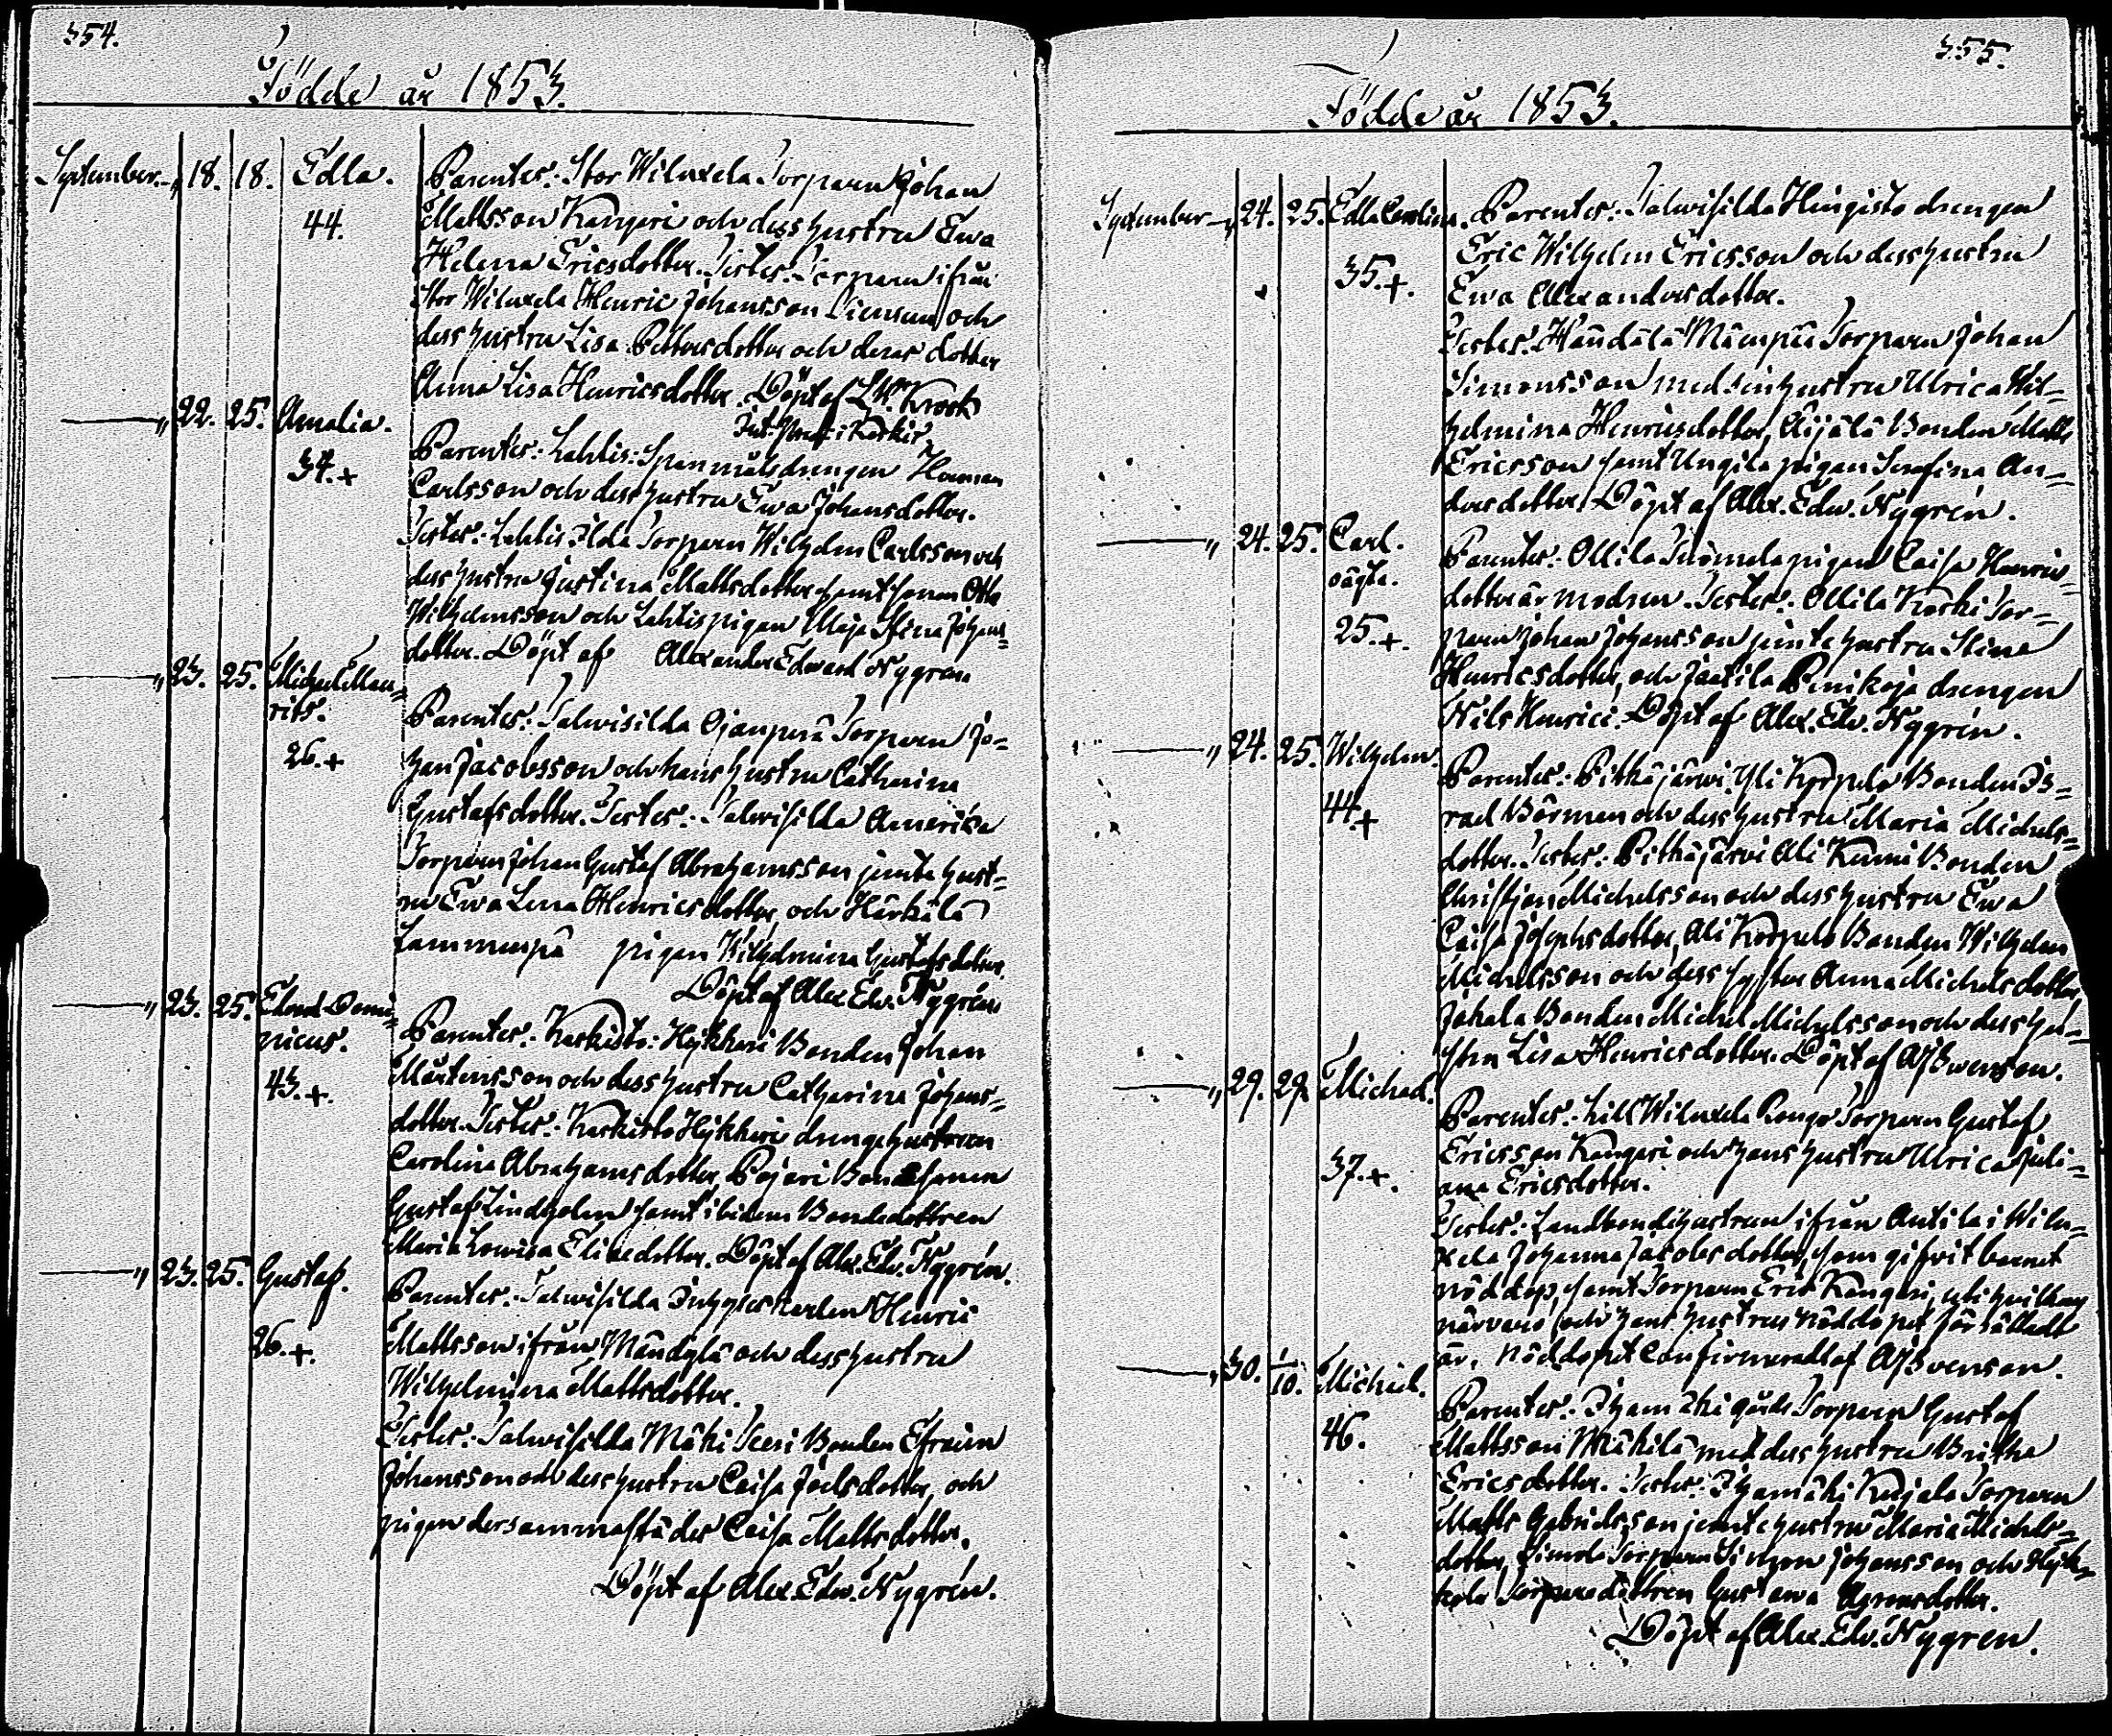 354.
Födde år 1853.
September „ 18. 18. Edla. Parentes: Stor Wiluxela Torparen Johan
44. Mattsson Kangari och dess hustru Ewa
Helena Ericsdotter. Testes: Torparen ifrån
Stor Wiluxela Henric Johansson och
dess hustru Lisa Pettersdotter och deras dotter
Anna Lisa Henricsdotter. Döpt af L. W. Krook
„ 22. 25. Amalia. Parentes: Lahtis: Spannmålsdrengen Herman
34.+ Carlsson och dess hustru Ewa Johansdotter.
Testes: Lahtis Torparen Wilhelm Carlsson och
dess hustru Justina Mattsdotter samt sonen Otto
Wilhelmsson och Lahtis pigan Maja Stina Johans=
dotter. Döpt af Alexander Edward Nygren
„ 23. 25. Michael Mau=
rits.
26.+
Parentes: Salwisilda Ojanperä Torparen Jo=
han Jacobsson och hans hustru Catharina
Gustafsdotter. Testes: Salwisilda Amerika
Torparen Johan Gustaf Abrahamsson jemte hust=
ru Ewa Lena Henricsdotter, och Härkälä
pigan Wilhelmina Gustafsdotter.
Döpt af Alex. Edw. Nygrén
„ 23. 25. Edvard Domi=
nicus.
43.+.
Parentes: Karkisto: Hykkeri Bonden Johan
Mårtensson och dess hustru Catharina Johans=
dotter. Testes: Karkisto Hykkeri drengehustrun
Carolina Abrahamsdotter, Pejari Bondesonen
Gustaf Lindholm samt ibidem Bondedottren
Maria Lowisa Eliaedotter. Döpt af Alex. Edw. Nygrén.
„ 23. 25. Gustaf. Parentes: Salwisilda Inhysekarlen Henric
26.+. Mattsson ifrån och dess hustru
Wilhelmina Mattsdotter.
Testes: Salwisilda Mäki Bonden Efraim
Johansson och dess hustru Caisa Joelsdotter, och
pigan dersammastädes Caisa Mattsdotter.
Döpt af Alex. Edw. Nygrén.
355.
Födde år 1853.
September „ 24. 25. Edla Carolina. Parentes: Salwisilda Hingisto drengen
35.+. Eric Wilhelm Ericsson och dess hustru
Ewa Alexandersdotter.
Testes: Torparen Johan
Simonsson med sin hustru Ulrica Wil=
helmina Henricsdotter, Äijälä Bonden Matts
Ericsson samt Ungila pigan Serafina An=
dersdotter. Döpt af Alex. Edw. Nygrén.
„ 24. 25. Carl.
oägta.
25.+.
Parentes: Ollila pigan Caisa Henrics=
dotter är modren. Testes: Ollila Koski Tor=
paren Johan Johansson jemte hustru Stina
Henricsdotter, och Jaatila Penikoja drengen
Nils Henrici. Döpt af Alex. Edw. Nygrén.
„ 24. 25. Wilhelm.
44.+
Parentes: Pitkäjärwi Yli Korpela Bonden Is=
rael Börman och dess hustru Maria Michels=
dotter. Testes: Pitkäjärwi Ali Bonden
Christjan Michelsson och dess hustru Ewa
Caisa Josephsdotter, Ali Korpela Bonden Wilhelm
Michelsson och dess syster Anna Michelsdotter,
Bonden Michel Michelsson och dess hu=
stru Lisa Henricsdotter. Döpt af Aj Swenson.
„ 29. 29. Michael.
37.+.
Parentes: Lill Wiluxela Torparen Gustaf
Ericsson Kangari och hans hustru Ulrica Juli=
ana Ericsdotter.
Testes: Landbondehustrun ifrån Antila i Wilu=
xela Johanna Jacobsdotter, som gifwit barnet
nöddop, samt Torparen Eric Kangari,
närvaro och hans hustru nöddopet förrättadt
är. Nöddopet Confirmeradt af Aj Swenson.
„ 30. 1/10. Michael.
46.
Parentes: Ihamäki gårds Torparen Gustaf
Mattsson Mäkilä med dess hustru Britha
Ericsdotter. Testes: Ihamäki Torparen
Matts Gabrielsson jemte hustru Maria Michels=
dotter, Torparen Simon Johansson och
Torparedottren Gustawa
Döpt af Alex. Edv. Nygren.